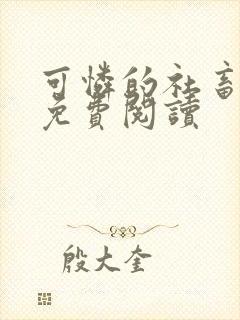 可憐的社畜
免費閱讀
殷大奎